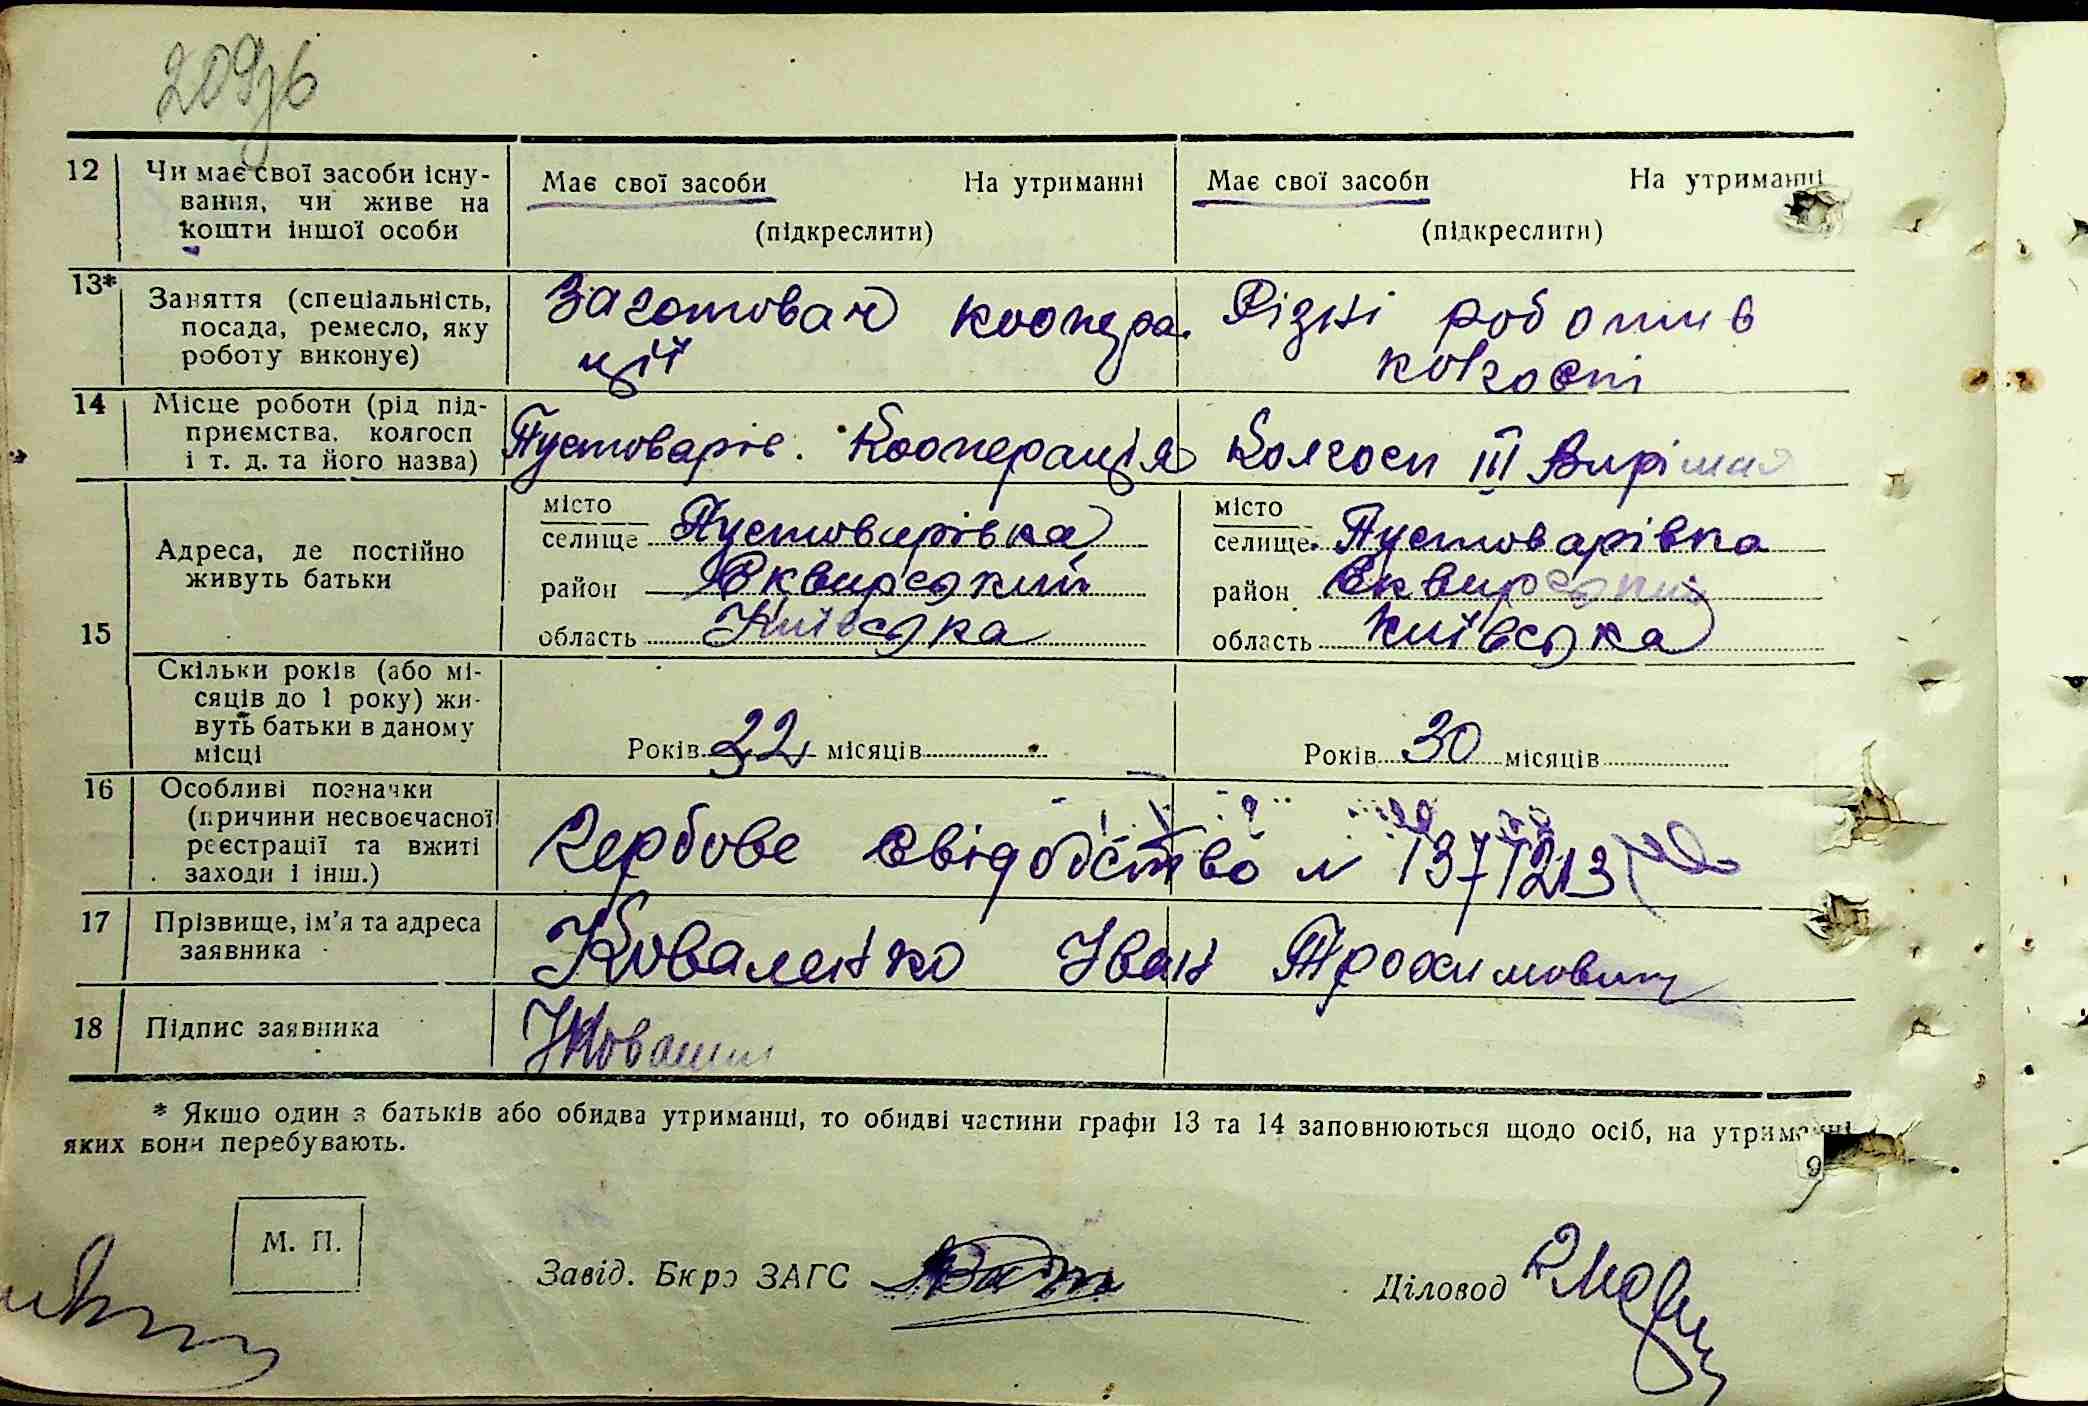 209зв
12 Чи має свої засоби існу- Має свої засоби На утриманні Має свої засоби На утриманні
вання, чи живе на
кошти іншої особи (підкреслити) (підкреслити)
13* Заняття (спеціальність, Заготовач коопера. Різні роботи в
посада, ремесло, яку ції колгоспі
роботу виконує)
14 Місце роботи (рід під-
приємства, колгосп Пустоварів. Кооперація Колгосп III Вирішал
і т. д. та його назва)
15 Адреса, де постійно
живуть батьки
місто
селище Пустоварівка
район Сквирський
область Київська
місто
селище Пустоварівка
район Сквирський
область Київська
Скільки років (або мі-
сяців до 1 року) жи-
вуть батьки в даному
місці
Років 22 місяців Років 30 місяців
16 Особливі позначки
(причини несвоєчасної
реєстрації та вжиті
заходи і інш.)
Гербове свідоство № 1371213
17 Прізвище, ім'я та адреса
заявника
Коваленко Іван Трохимович
18 Підпис заявника
* Якщо один з батьків або обидва утриманці, то обидві частини графи 13 та 14 заповнюються щодо осіб, на утриманні
яких вони перебувають.
9
М. П.
Завід. Бюро ЗАГС Діловод